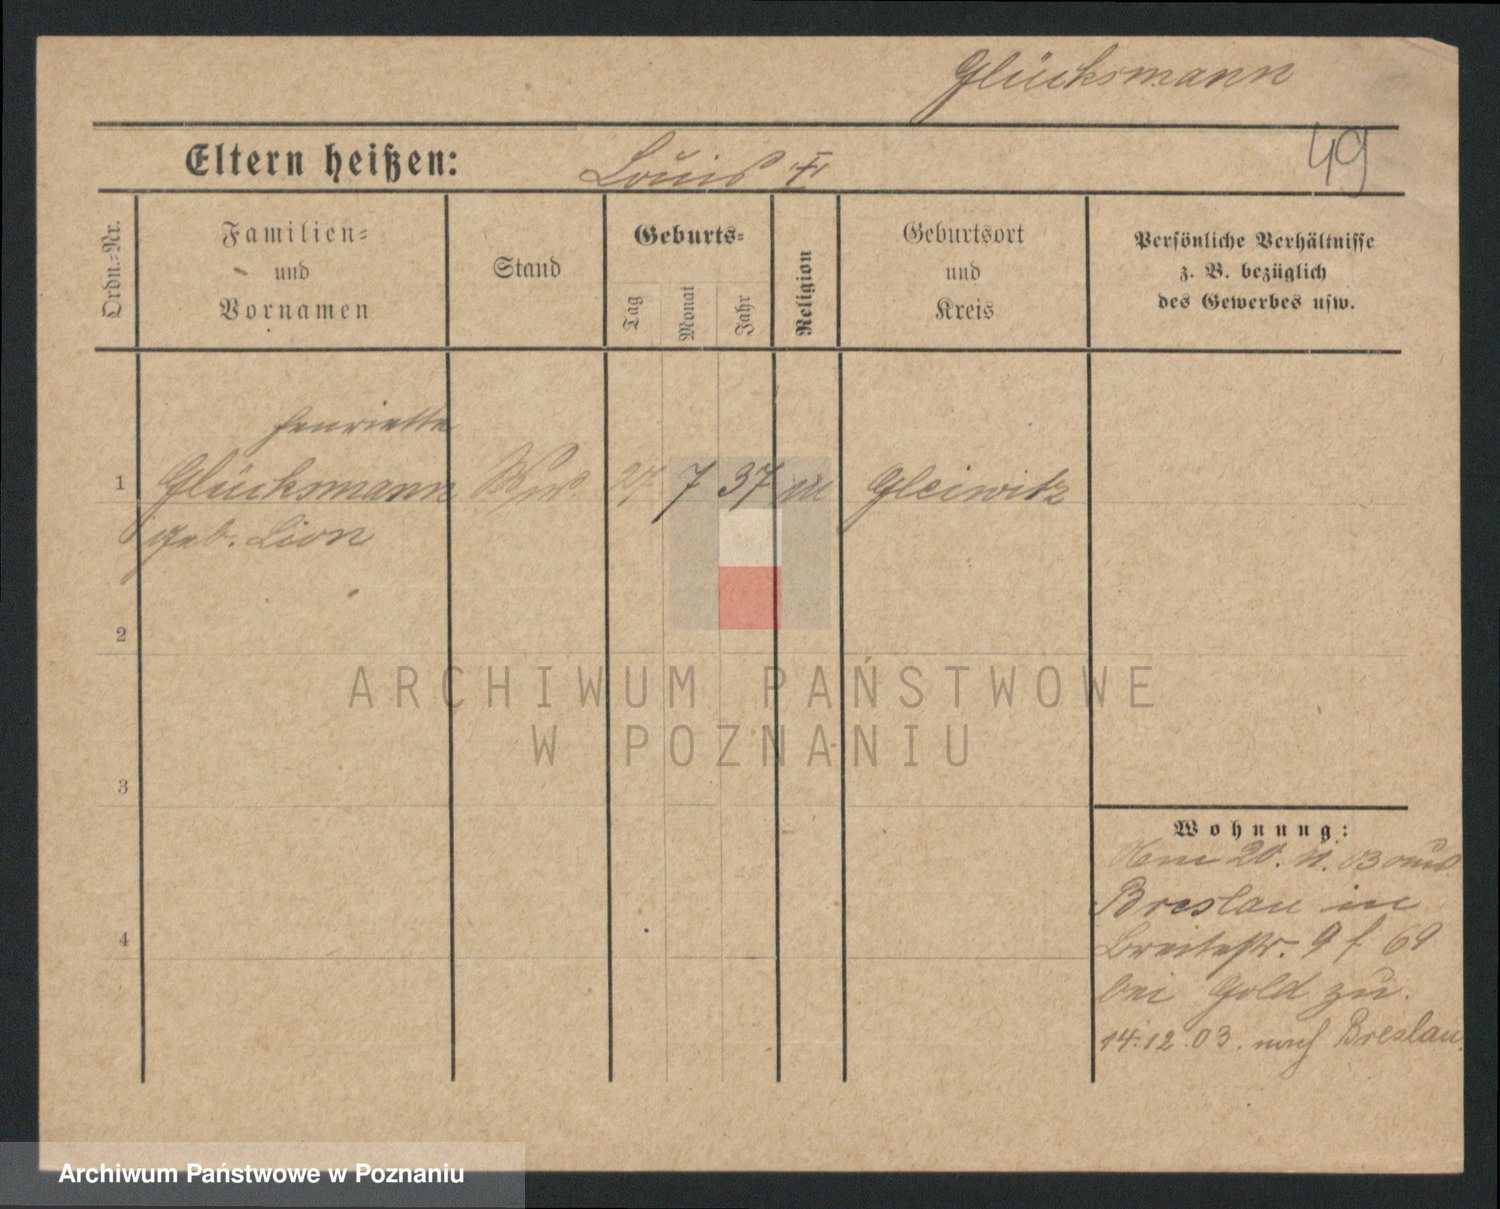 Glücksmann
49
Eltern heißen: Louis †
Ordn.-Nr.
Familien-
und
Vornamen
Stand
Geburts-
Tag
Monat
Jahr
Religion
Geburtsort
und
Kreis
Persönliche Verhältnisse
z. B. bezüglich
des Gewerbes usw.
Henriette
1 Glücksmann 27 7 37 Gleiwitz
geb. Lion
2
3
4
Wohnung:
20. 11. 03 aus
Breslau in
Breitestr. 9 f 69
bei Gold zu.
14.12.03. nach Breslau
ARCHIWUM PAŃSTWOWE
W POZNANIU
Archiwum Państwowe w Poznaniu